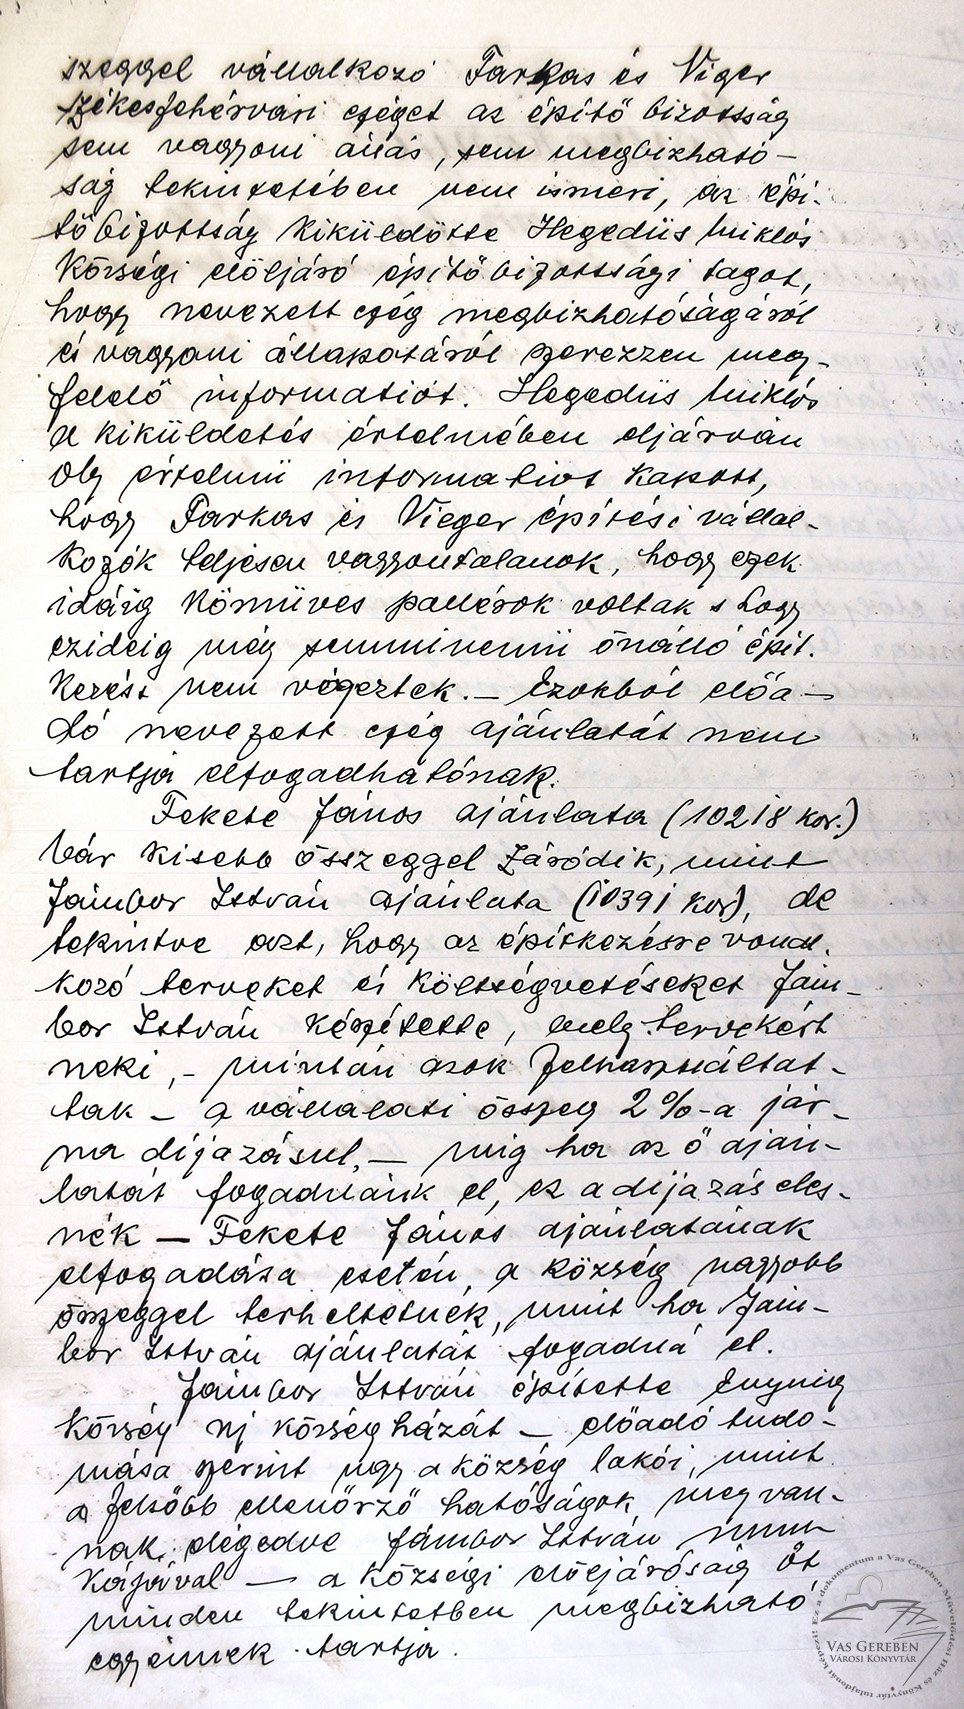 szeggel vállalkozó Farkas és Viger
székesfehérvári czéget az épitő bizottság
sem vagyoni állás, sem megbizható-
ság tekintetében nem ismeri, az épi-
tőbizottság kiküldötte Hegedüs Miklós
községi elöljáró épitőbizottsági tagot,
hogy nevezett czég megbizhatóságáról
és vagyoni állapotáról szerezzen meg-
felelő informatiót. Hegedüs Miklós
e kiküldetés értelmében eljárván
oly értelmü informatiót kapott,
hogy Farkas és Vieger épitési vállal-
kozók teljesen vagyontalanok, hogy ezek
idáig kömüves pallérok voltak s hogy
ezideig még semminemü önálló épit-
kezést nem végeztek. — Ezokból előa-
dó nevezett czég ajánlatát nem
tartja elfogadhatónak.
Fekete János ajánlata (10218 kor.)
bár kisebb összeggel záródik, mint
Jámbor István ajánlata (10391 kor), de
tekintve azt, hogy az épitkezésre vonat-
kozó terveket és költségvetéseket Jám-
bor István készitette, mely tervekért
neki, - miután azok felhasználtat-
tak - a vállalati összeg 2%-a jár-
na díjazásul, — mig ha az ő aján-
latát fogadnánk el, ez a díjazás eles-
nék — Fekete János ajánlatának
elfogadása esetén, a község nagyobb
összeggel terheltetnék, mint ha Jám-
bor István ajánlatát fogadná el.
Jámbor István épitette Enying
község uj községházát — előadó tudo-
mása szerint ugy a község lakói, mint
a felsőbb ellenőrző hatóságok meg van-
nak elégedve Jámbor István mun-
kájával — a községi elöljáróság őt
minden tekintetben megbizható
egyénnek tartja.
Ez a dokumentum a Vas Gereben Művelődési Ház és Könyvtár tulajdonát képezi!
VAS GEREBEN
VÁROSI KÖNYVTÁR